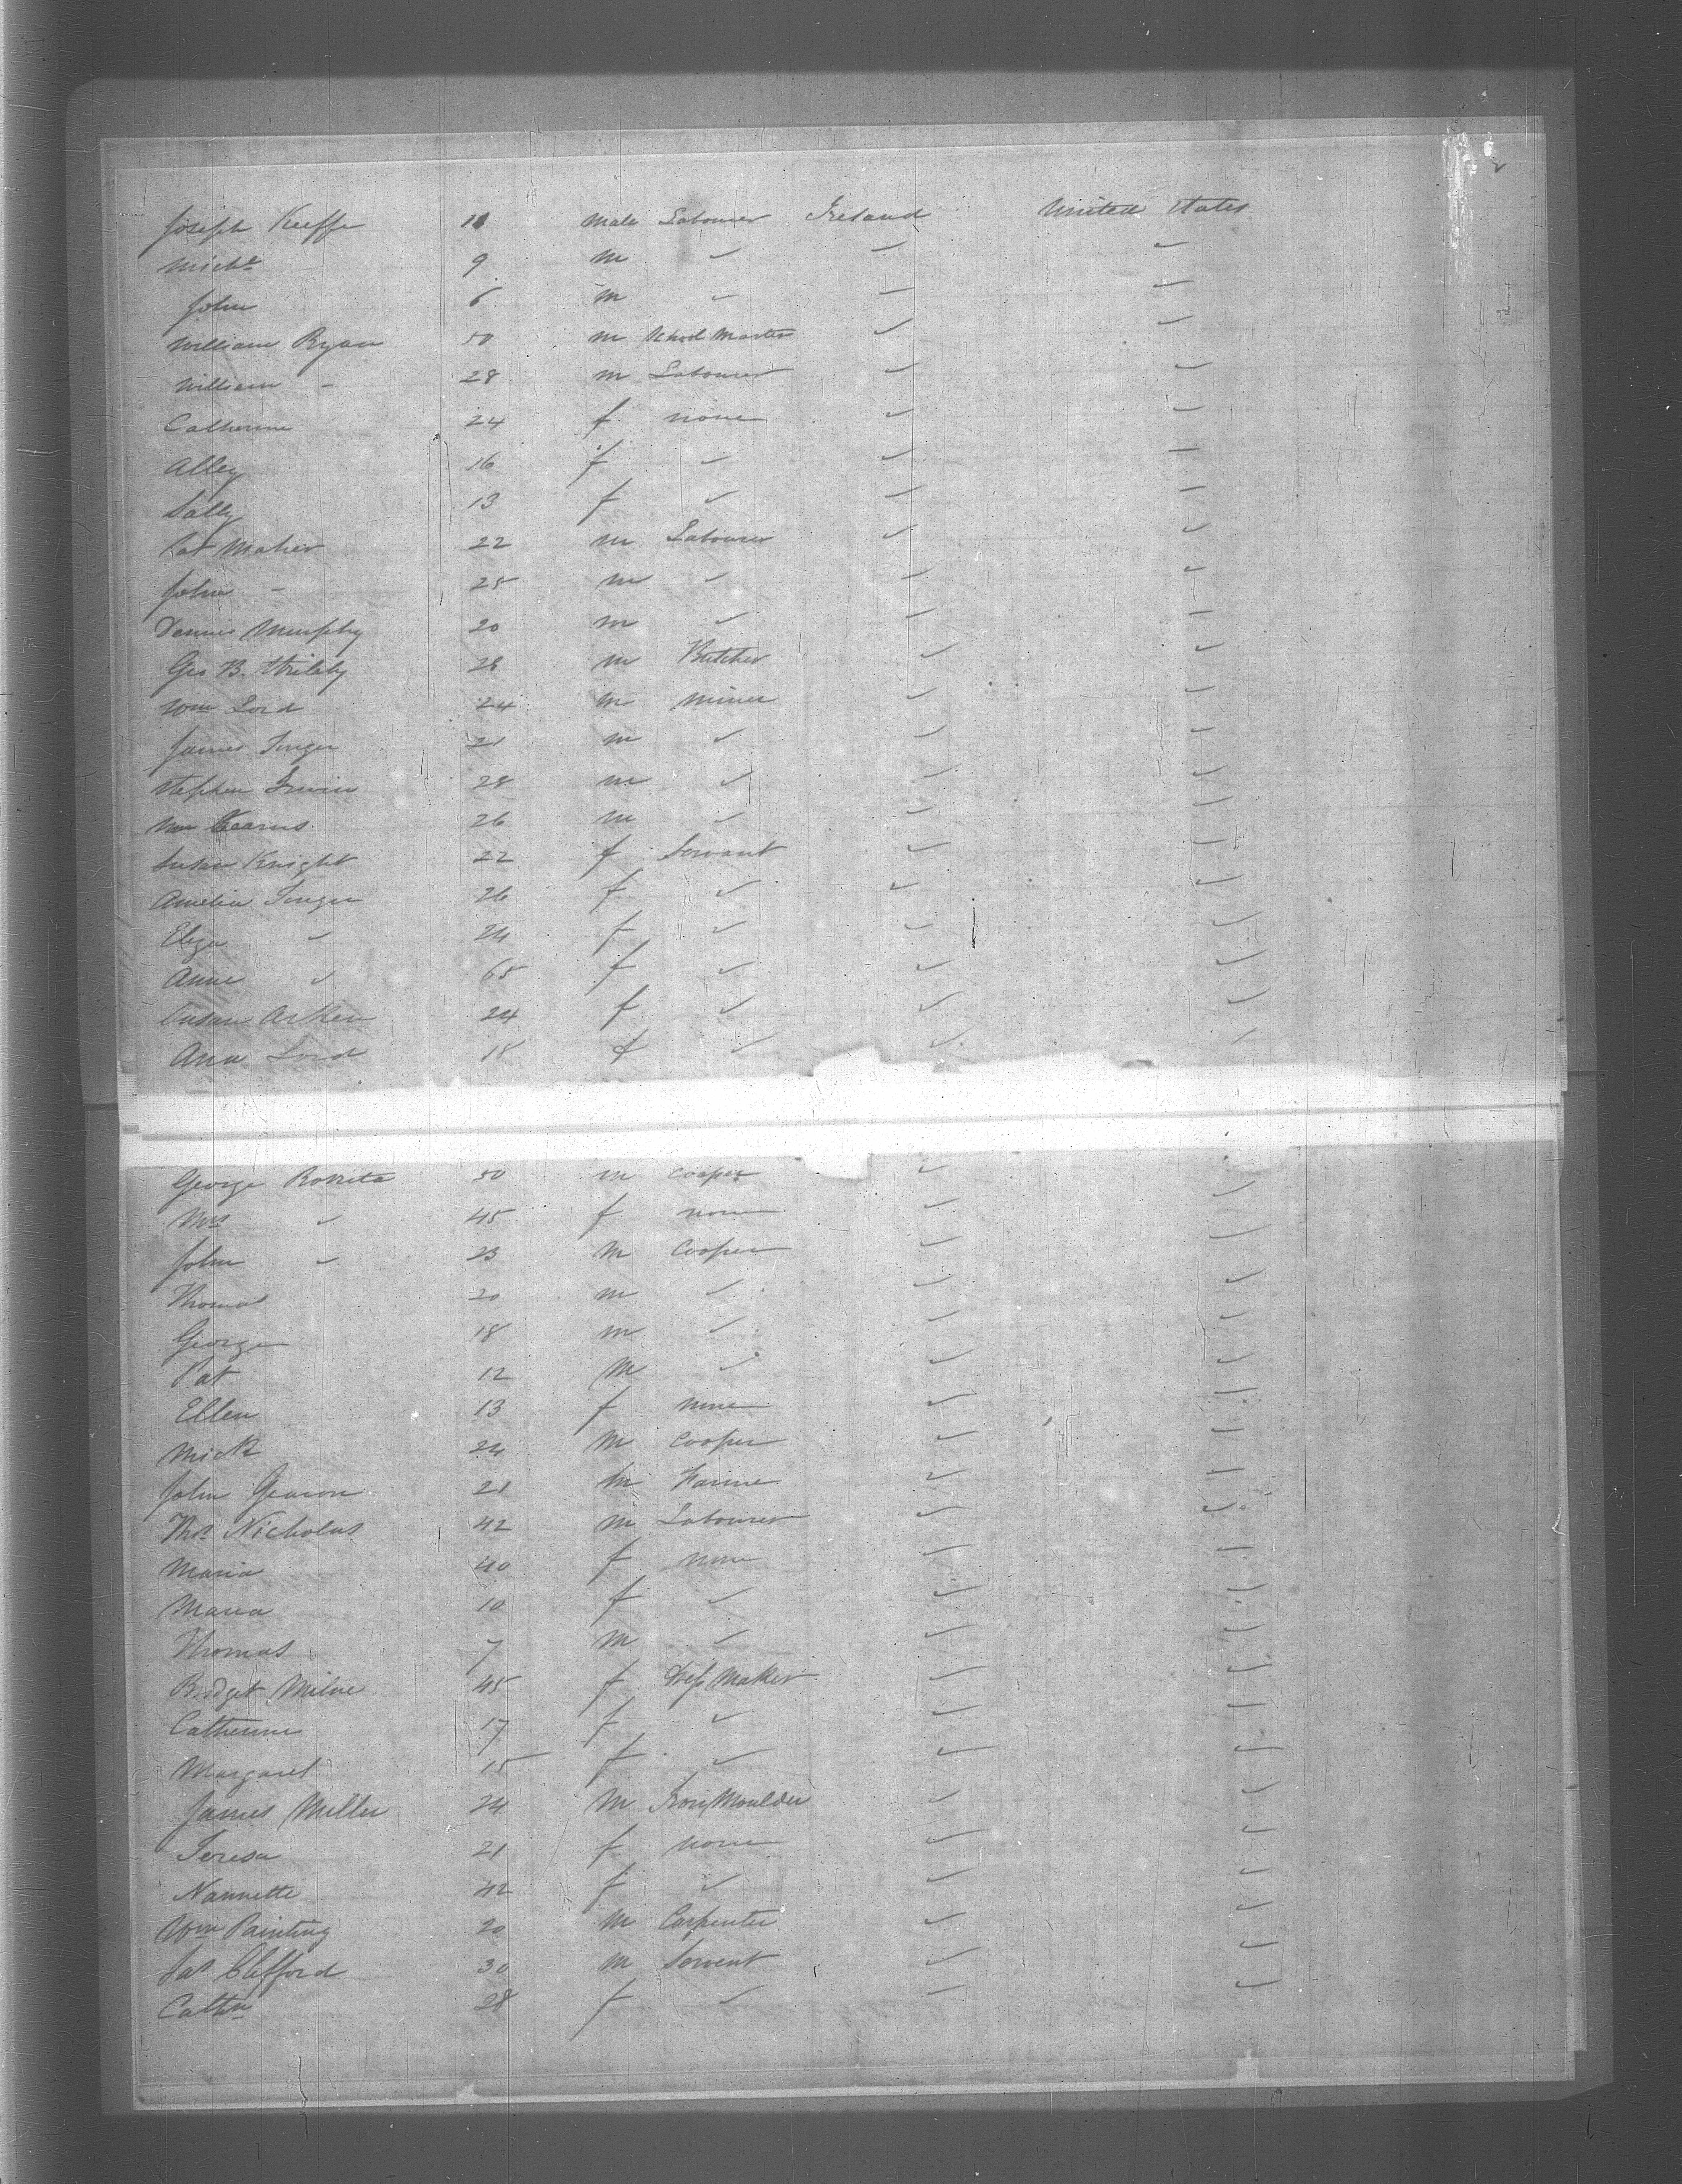 Joseph Keeffe 11 Male Labourer Ireland United States
Michl 9 m ✓ — ✓
John 6 m ✓ — ✓
William Ryan 50 m School Master ✓ ✓
William - 28 m Labourer ✓ ✓
Catherine 24 f none ✓ ✓
Alley 16 f ✓ ✓ —
Sally 13 f ✓ ✓ —
Pat Maher 22 m Labourer ✓ ✓
John - 25 m ✓ — ✓
Dennis Murphy 20 m ✓ — —
Geo B. 28 m Butcher ✓ ✓
Wm Lord 24 m Miner ✓ ✓
James Singer 21 m ✓ ✓ ✓
Stephen Irwin 28 m ✓ ✓ ✓
Wm Kearns 26 m ✓ ✓ ✓
Susan Knight 22 f Servant ✓ ✓
Amelia Singer 26 f ✓ ✓ ✓
Eliza ✓ 24 f ✓ ✓ ✓
Anne ✓ 65 f ✓ ✓ ✓
Susan Arken 24 f ✓ ✓ ✓
Ann Lord 18 f ✓ ✓ ✓
George 50 m Cooper ✓ ✓
Mrs ✓ 45 f none ✓ ✓
John ✓ 23 m Cooper ✓ ✓
Thomas 20 m ✓ ✓ ✓
George 18 m ✓ ✓ ✓
Pat 12 m ✓ ✓ ✓
Ellen 13 f none ✓ ✓
Mick 24 m Cooper ✓ ✓
John Gearon 21 m Farmer ✓ ✓
Thos Nicholas 42 m Labourer ✓ ✓
Maria 40 f none ✓ —
Maria 10 f ✓ ✓ ✓
Thomas 7 m ✓ ✓ ✓
Bridget Milne 45 f Dress Maker ✓ ✓
Catherine 17 f ✓ ✓ ✓
Margaret 15 f ✓ ✓ ✓
James Miller 24 m Iron Moulder ✓ ✓
Teresa 21 f none ✓ ✓
Nannette 42 f ✓ ✓ ✓
Wm Painting 20 m Carpenter ✓ ✓
Jas Clifford 30 m Servent ✓ ✓
Cathn 28 f ✓ ✓ ✓